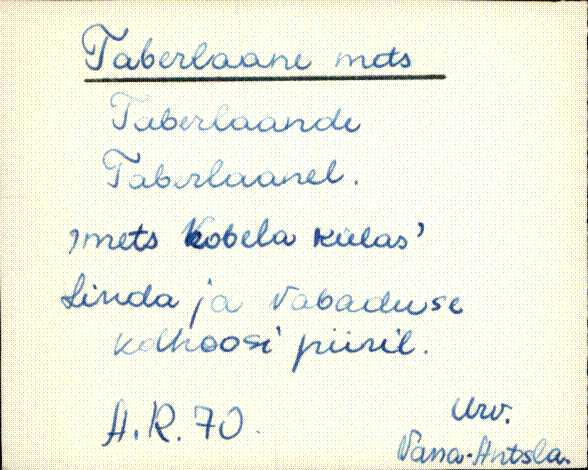 Taberlaane mets
Taberlaande
Taberlaanel.
,mets Kobela külas'
Linda ja Vabaduse
kolhoosi piiril.
A.R.70.
Urv.
Vana-Antsla.